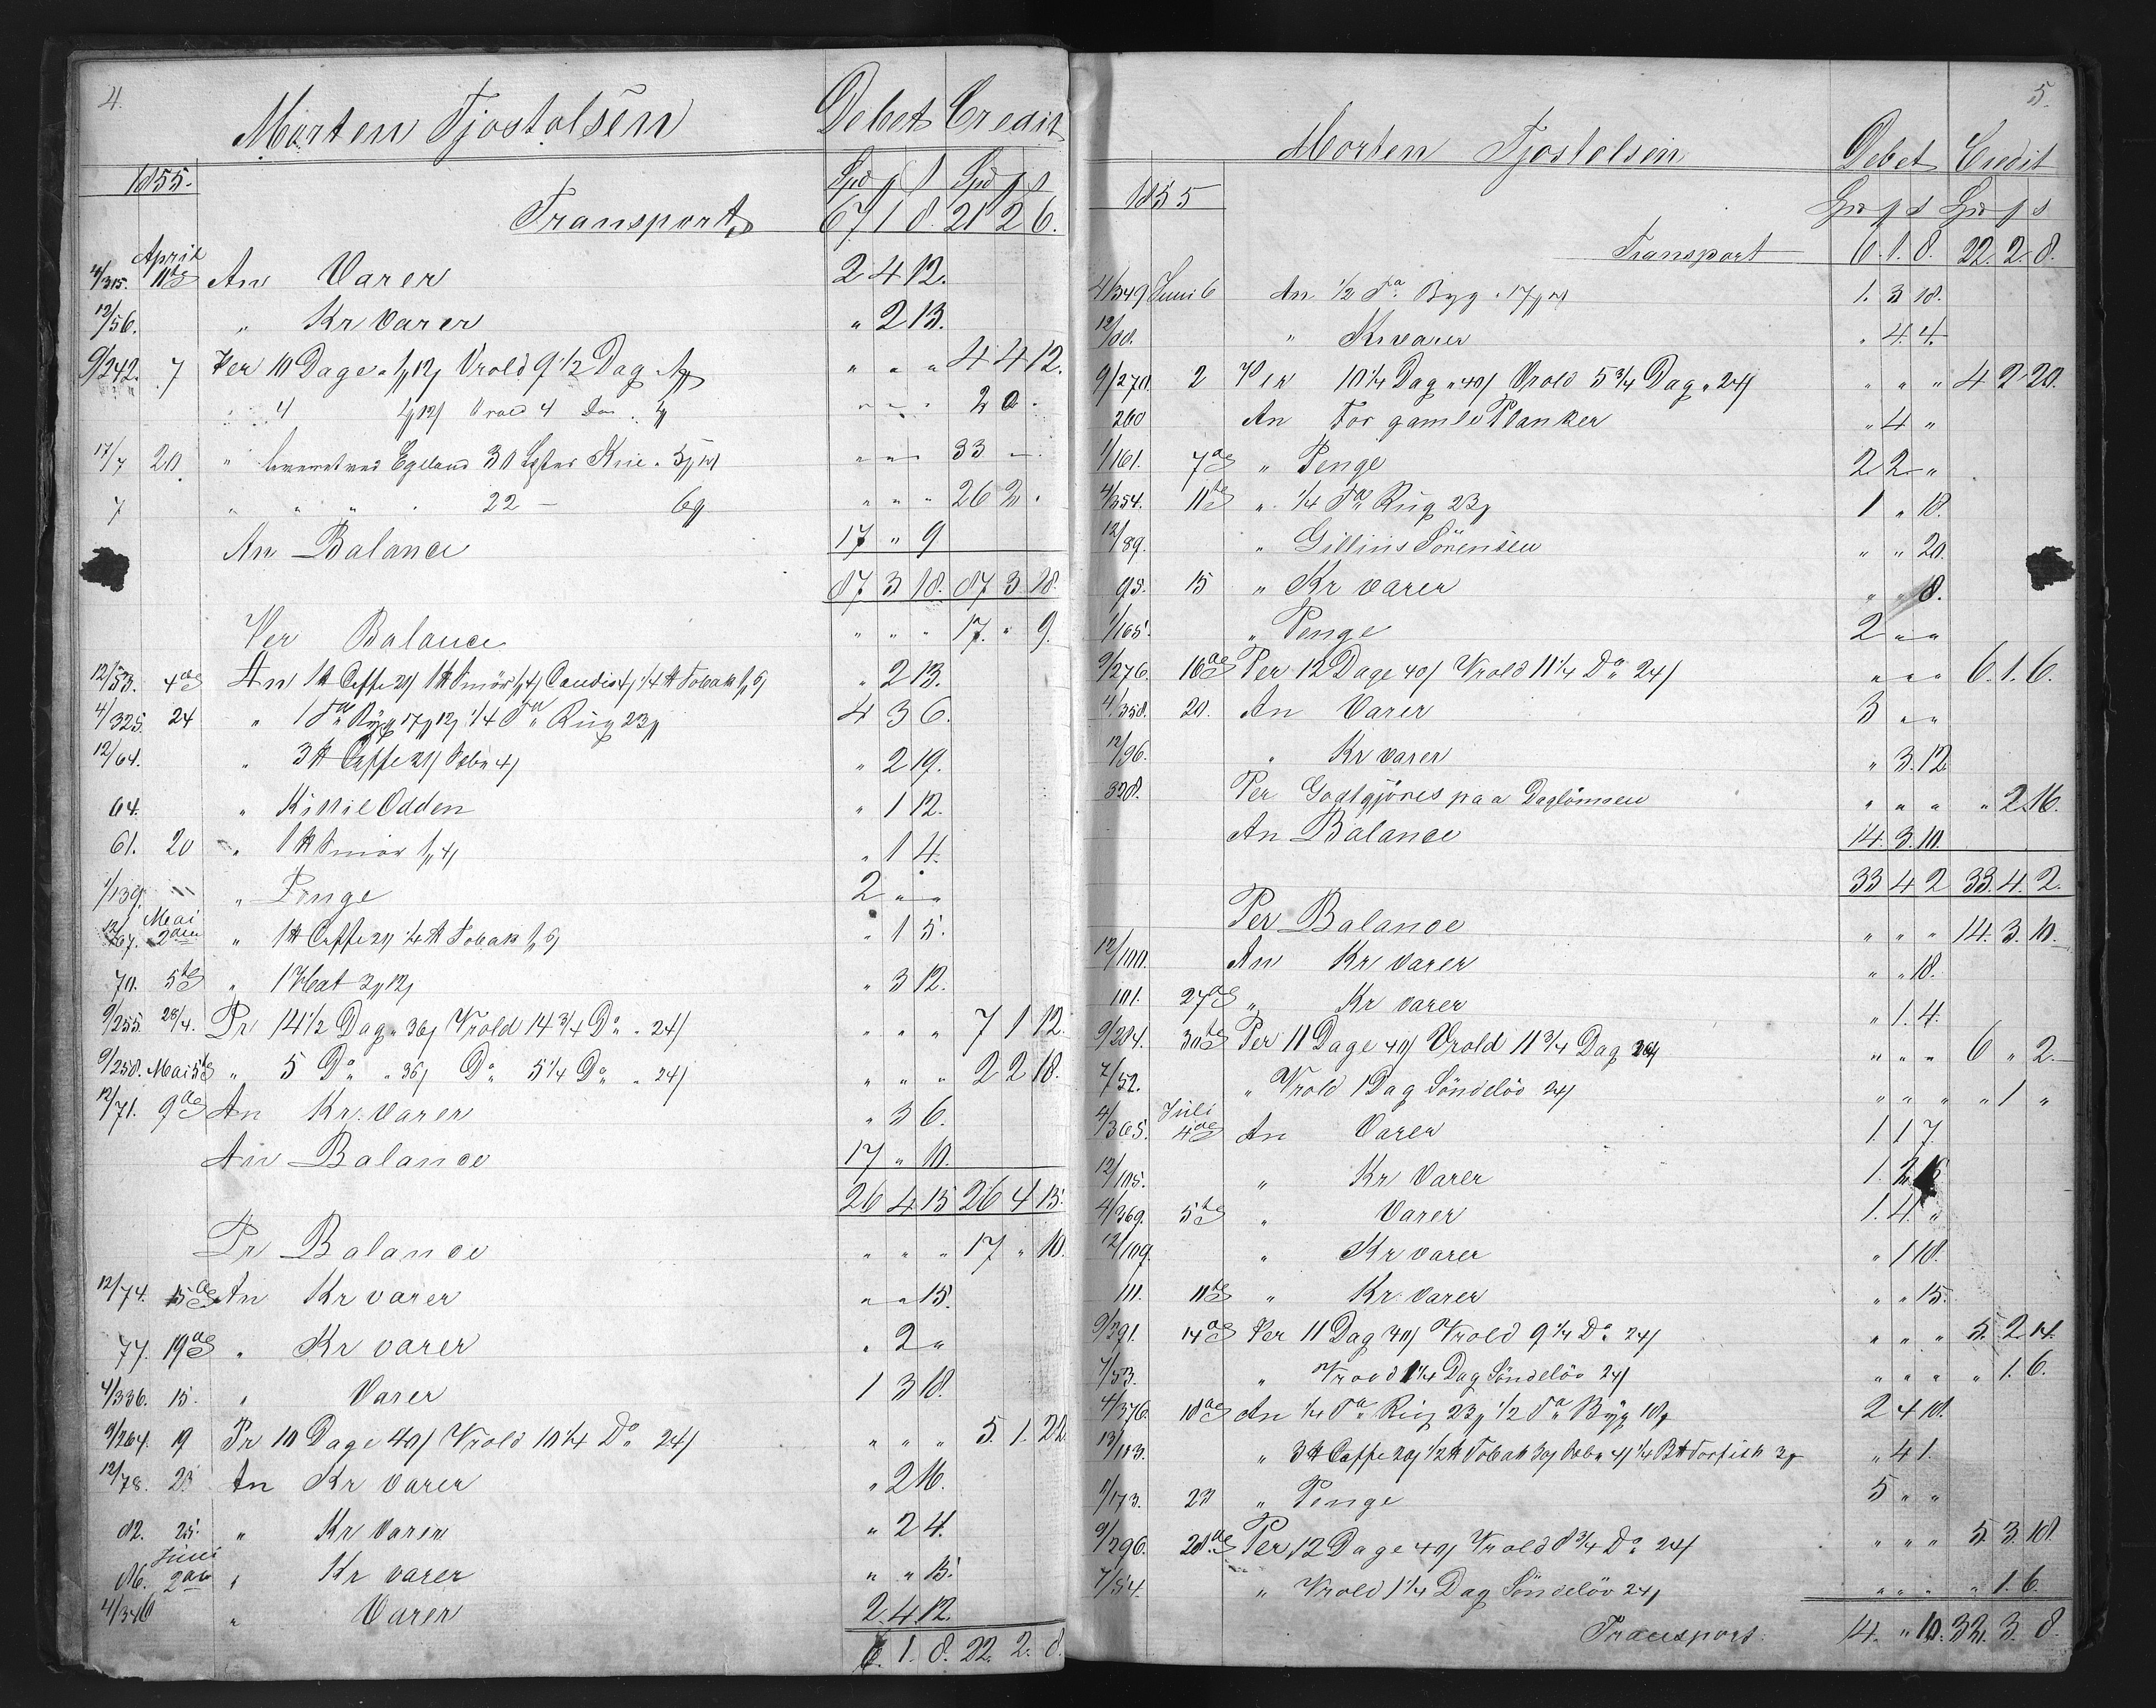 4.
Morten Tjostolsen Debet Credit
1855. Spd p s Spd p s
Transport 67 1 8. 21 2 6.
April
4/315. 11te An Varer 2 4 12.
12/56. " Kr Varer " 2 13.
9/242. 7 Per 10 Dage Vrold 9 1/2 Dag " " " 4 4 12.
" 4 Vrold 4 " " " 2 0
17/7 20 " Egeland 30 Knie " " " 33 " "
7 " " " 22 — 6p " " " 26 2 "
An Balance 17 " 9
87 3 18. 87 3 18.
Per Balance " " " 17. " 9.
12/53. 4de An 1 ℔ Caffe 21/ 1 ℔ Smör Candis 1/4 ℔ Tobak " 2 13.
4/325. 24 " 1 Ta Byg 17p 12/ 1/4 Ta Rug 23p 4 3 6.
12/64. " 3 ℔ Caffe 21/ 4/ " 2 19.
64. " Kittil Odden " 1 12.
61. 20 " 1 ℔ Smör " 1 4.
1/139. " " Penge 2 " "
Mai
12/67. 2den " 1 ℔ Caffe 21/ 1/4 ℔ Tobak " 1 5.
70. 5te " 3p 12/ " 3 12.
9/255. 28/4. Pr 14 1/2 Dag " 36/ Vrold 14 3/4 Do " 24/ " " " 7 1 12.
9/258. Mai 5te " 5 Do " 36/ Do 5 1/4 Do " 24/ " " " 2 2 18.
12/71. 9de An Kr. Varer " 3 6.
An Balance 17 " 10.
26 4 15 26 4 15.
Pr Balance " " " 17 " 10.
12/74. 15de An Kr varer " " 15.
77. 19de " Kr varer " 2 "
4/336. 15. " Varer 1 3 18.
9/264. 19 Pr 10 Dage 40/ Vrold 10 1/4 Do 24/ " " " 5. 1. 22.
12/78. 23 An Kr varer " 2 16.
82. 25. " Kr Varer " 2 4.
Juni
86. 2den " Kr varer " " 15.
4/346 " Varer 2. 4 12.
6. 1. 8. 22. 2. 8.
5.
Morten Tjostolsen Debet Credit
1855 Spd p s Spd p s
Transport 6. 1. 8. 22. 2. 8.
4/349 Juni 6 An 1/2 Ta Byg " 17p 1. 3 18.
12/88. " Kr varer " 4. 4.
9/270. 2 Per 10 1/4 Dag " 40/ Vrold 5 3/4 Dag " 24/ " " " 4 2 20.
260 An For gamle Planker " 4 "
1/161. 7de " Penge 2 2 "
4/354. 11te " 1/4 Ta Rug 23p 1 " 18.
12/89. " Sörensen " " 20.
95. 15 " Kr varer " " 8.
1/165. " Penge 2 " "
9/276. 16de Per 12 Dage 40/ Vrold 11 1/4 Do 24/ " " " 6. 1. 6.
4/358. 20. An Varer 3 " "
12/96. " Kr varer " 3. 12.
328. Per Godtgjöres paa Daglönnen " " " " 2 16.
An Balance 14. 3. 10.
33 4 2 33. 4. 2.
Per Balance " " " 14. 3. 10.
12/100. An Kr varer " " 18.
101. 27de " Kr varer " 1. 4.
9/284. 30te Per 11 Dage 40/ Vrold 11 3/4 Dag 24/ " " " 6 " 2.
7/52. " Vrold 1 Dag Söndelöv 24/ " " " " 1 "
Juli
4/365. 4de An Varer 1. 1 7.
12/105. " Kr Varer 1. 2
4/369. 5te " Varer 1. 4. "
12/109. " Kr varer " 1 18.
111. 11te " Kr. varer " " 15.
9/291. 14de Per 11 Dag 40/ Vrold 9 1/4 Do 24/ " " " 5. 2. 14.
7/53. " Vrold 1 1/4 Dag Söndelöv 24/ " " " " 1. 6.
4/376. 18de An 1/4 Ta Rug 23p 1/2 Ta Byg 18p 2 4 18.
12/113. " 3 ℔ Caffe 20/ 1/2 ℔ Tobak 30/ 4/ 1/4 B℔ Torfisk 3p " 4 1.
1/173. 23 " Penge 5 " "
9/296. 28de Per 12 Dage 40/ Vrold 8 3/4 Do 24/ " " " 5. 3. 18.
7/54. " Vrold 1 1/4 Dag Söndelöv 24/ " " " " 1. 6.
Transport 14. " 10. 32. 3. 8.